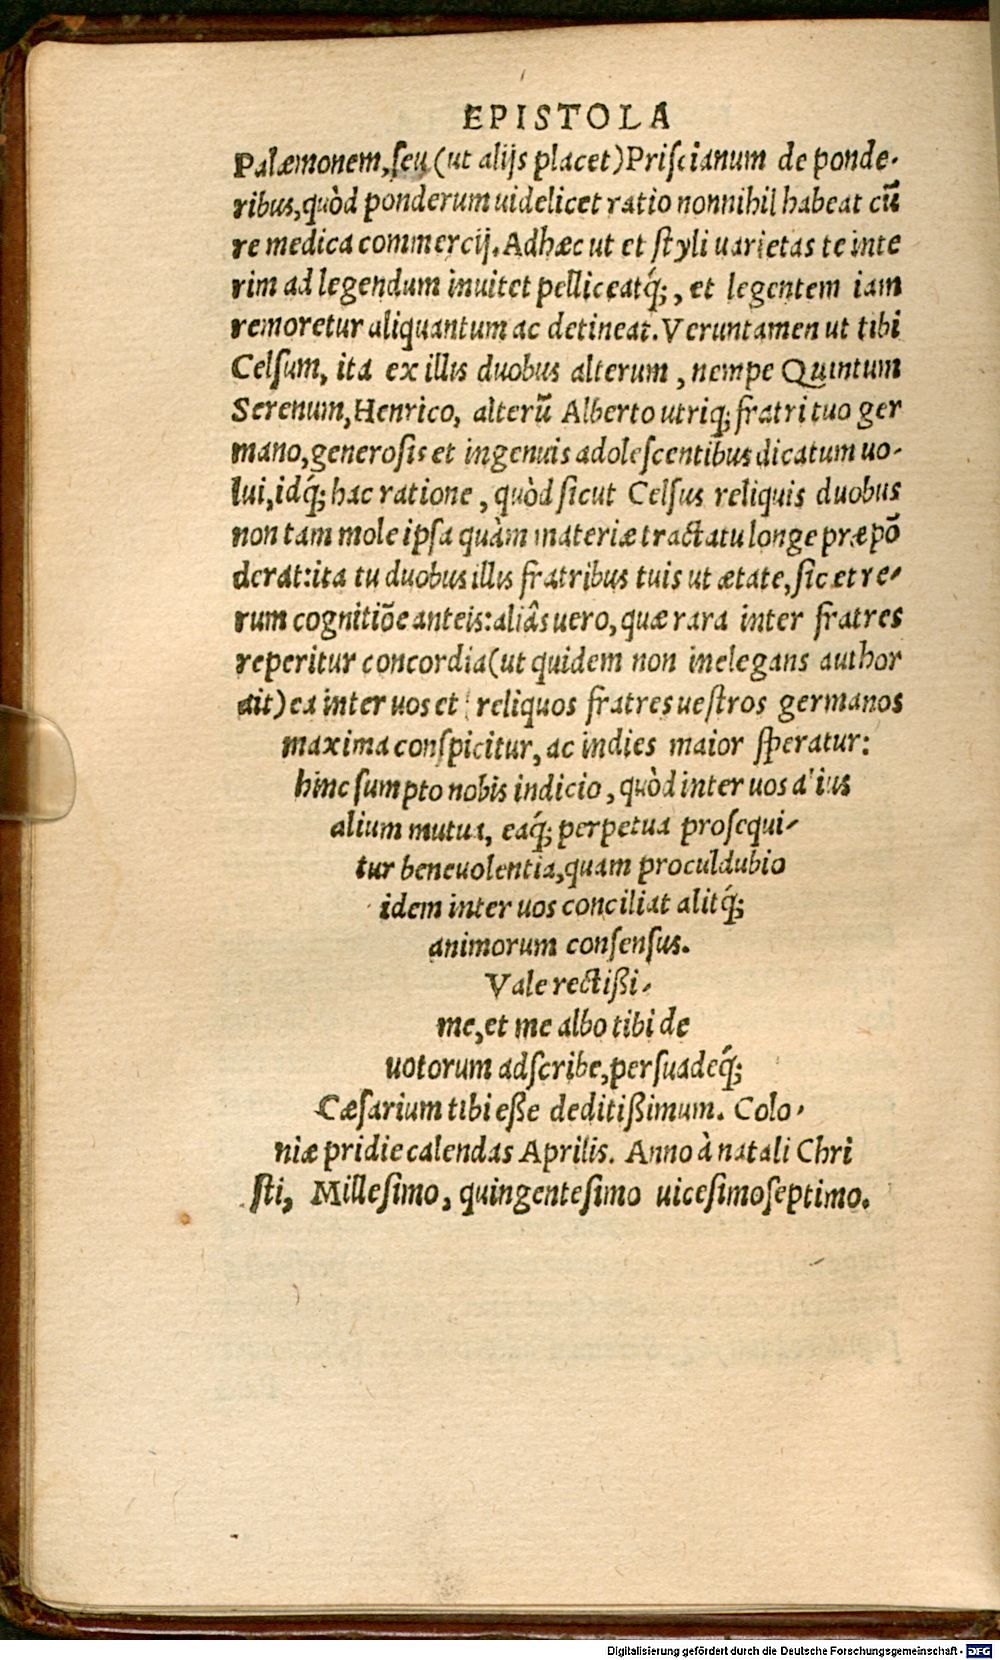 EPISTOLA
Palæmonem, ſeu (ut alijs placet) Priſcianum de ponde-
ribus, quòd ponderum uidelicet ratio nonnihil habeat cū
re medica commercij. Adhæc ut et ſtyli uarietas te inte
rim ad legendum inuitet pelliceatq́;, et legentem iam
remoretur aliquantum ac detineat. Veruntamen ut tibi
Celſum, ita ex illis duobus alterum, nempe Quintum
Serenum, Henrico, alterū Alberto utriq; fratri tuo ger
mano, generoſis et ingenuis adoleſcentibus dicatum uo-
lui, idq́; hac ratione, quòd ſicut Celſus reliquis duobus
non tam mole ipſa quàm materiæ tractatu longe præpō
derat: ita tu duobus illis fratribus tuis ut ætate, ſic et re-
rum cognitiōe anteis: aliâs uero, quæ rara inter fratres
reperitur concordia (ut quidem non inelegans author
ait) ea inter uos et reliquos fratres ueſtros germanos
maxima conſpicitur, ac indies maior ſperatur:
hinc ſumpto nobis indicio, quòd inter uos alius
alium mutua, eaq́; perpetua proſequi-
tur beneuolentia, quam proculdubio
idem inter uos conciliat alitq́;
animorum conſenſus.
Vale rectißi-
me, et me albo tibi de
uotorum adſcribe, perſuadeq́;
Cæſarium tibi eße deditißimum. Colo-
niæ pridie calendas Aprilis. Anno à natali Chri
ſti, Milleſimo, quingenteſimo uiceſimoſeptimo.
Digitalisierung gefördert durch die Deutsche Forschungsgemeinschaft - DFG